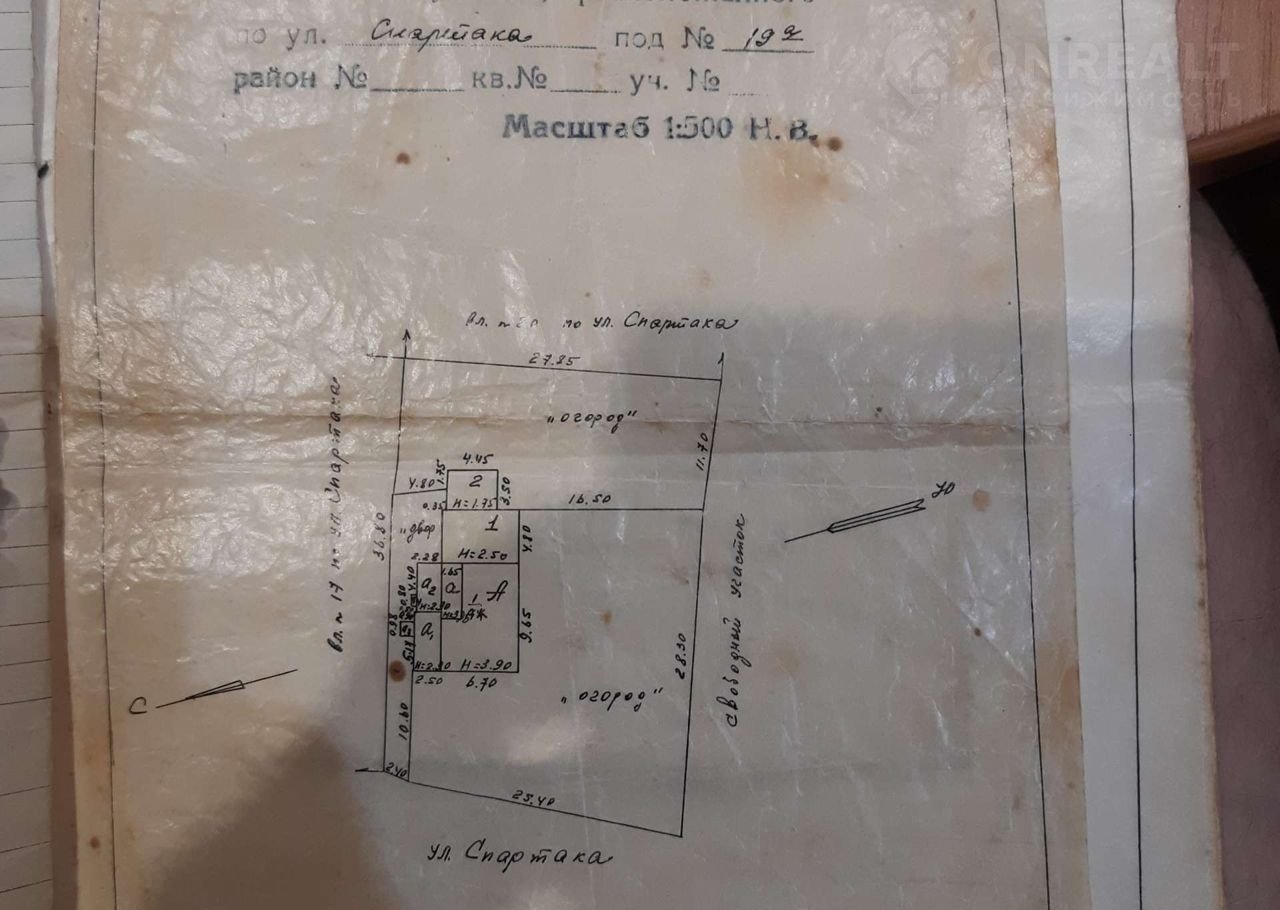 по ул. Спартака под № 19а
район № кв. № уч. №
Масштаб 1:500 Н. В.
ONREALT
НЕДВИЖИМОСТЬ
по ул. Спартака
27.85
"огород"
11.70
4.45
1.75
2
3.50
4.80
Н=1.75
0.35
16.50
"двор
1
4.80
Н=2.50
2.28
1.65
4.40
а2
а
А
1
9.65
а1
Н=3.90
2.50
6.70
36.80
вл. № 17 по ул. Спартака
Ю
С
свободный участок
28.30
"огород"
10.60
2.40
25.40
ул. Спартака